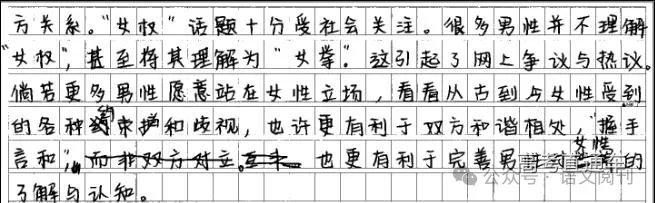 方关系。"女权"话题十分受社会关注。很多男性并不理解
"女权",甚至将其理解为"女拳"。这引起了网上争议与热议。
倘若更多男性愿意站在女性立场,看看从古到今女性受到
的各种约束和歧视,也许更有利于双方和谐相处,"握手
言和",而非双方对立。也更有利于完善男性对女性的
了解与认知。
公众号·语文阅刊